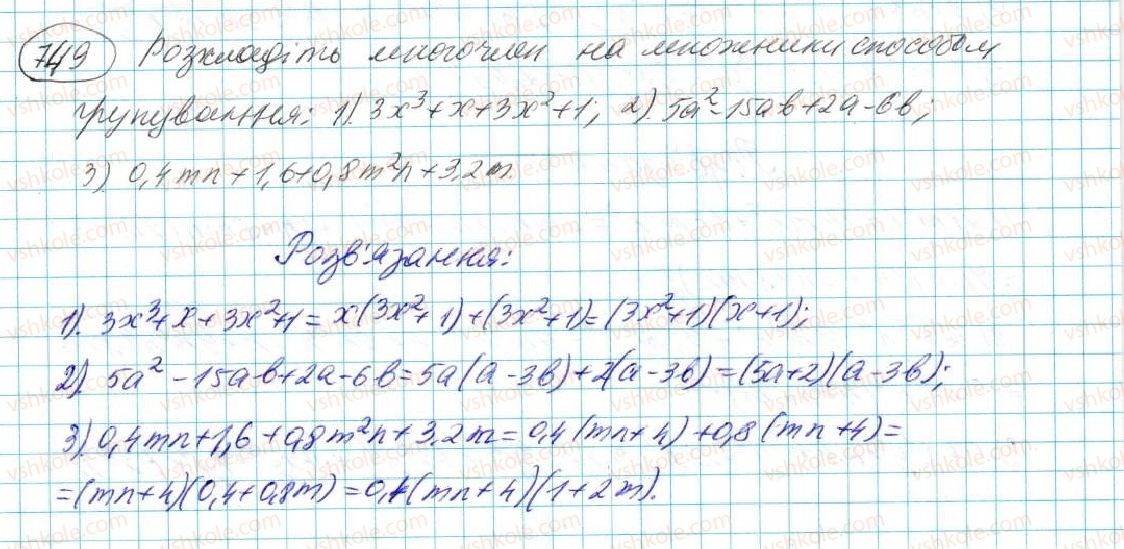 749 Розкладіть многочлен на множники способом
групування: 1). 3x³+x+3x²+1; 2). 5a²-15ab+2a-6b;
3) 0,4mn+1,6+0,8m²n+3,2m.
Розв'язання:
1). 3x³+x+3x²+1=x(3x²+1)+(3x²+1)=(3x²+1)(x+1);
2). 5a²-15ab+2a-6b=5a(a-3b)+2(a-3b)=(5a+2)(a-3b);
3) 0,4mn+1,6+0,8m²n+3,2m=0,4(mn+4)+0,8(mn+4)=
=(mn+4)(0,4+0,8m)=0,4(mn+4)(1+2m).
vshkole.com